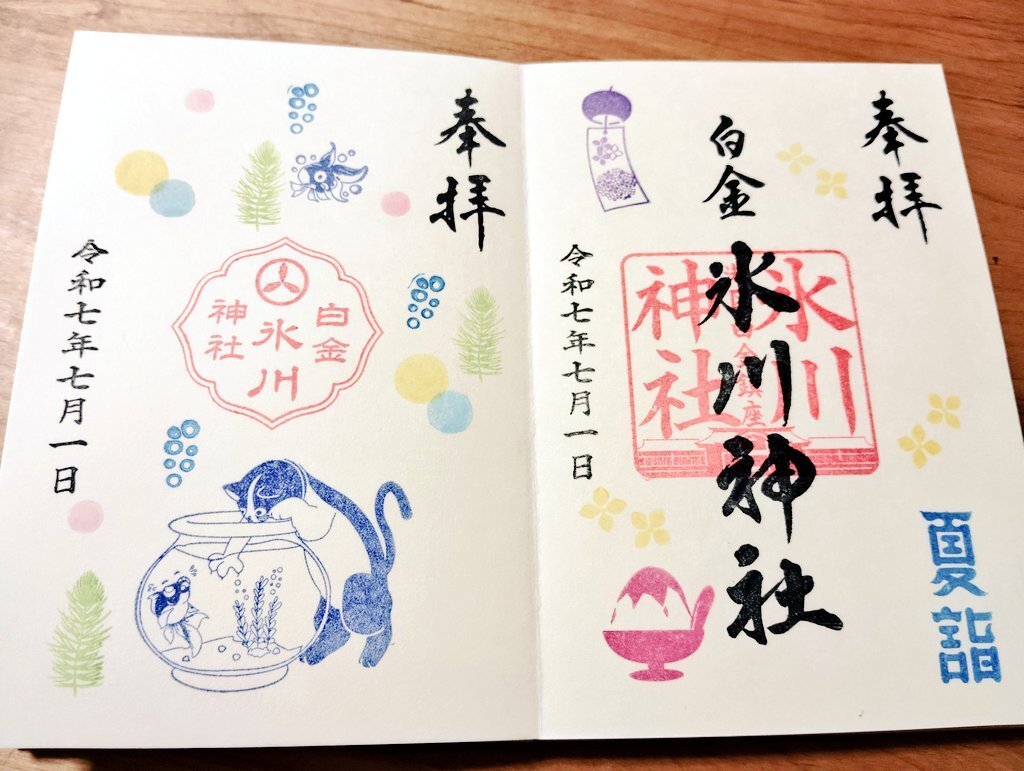 奉拝
白金
氷川神社
氷川
神社
令和七年七月一日
夏詣
奉拝
白金
氷川
神社
令和七年七月一日